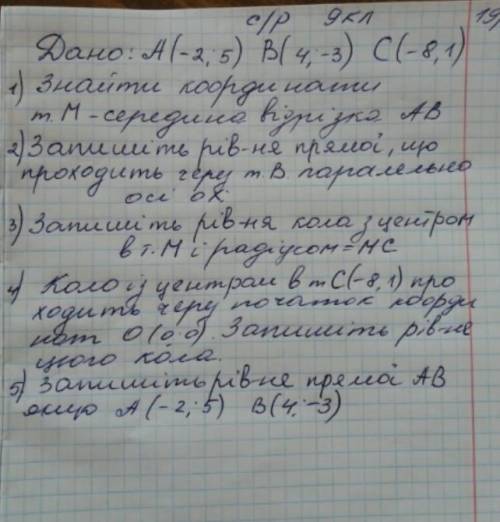 с/р 9кл 19
Дано: А(-2; 5) В(4; -3) С(-8, 1)
1) Знайти координати
т. М - середина відрізка АВ
2) Запишіть рів-ня прямої, що
проходить черу т. В паралельно
осі оХ.
3) Запишіть рів-ня кола з центром
в т. М і радіусом = МС
4) Коло із центром в т С(-8, 1) про
ходить черу початок коорди
нат О(0; 0). Запишіть рів-не
цього кола.
5) Запишіть рів-не прямої АВ
якщо А(-2; 5) В(4; -3)